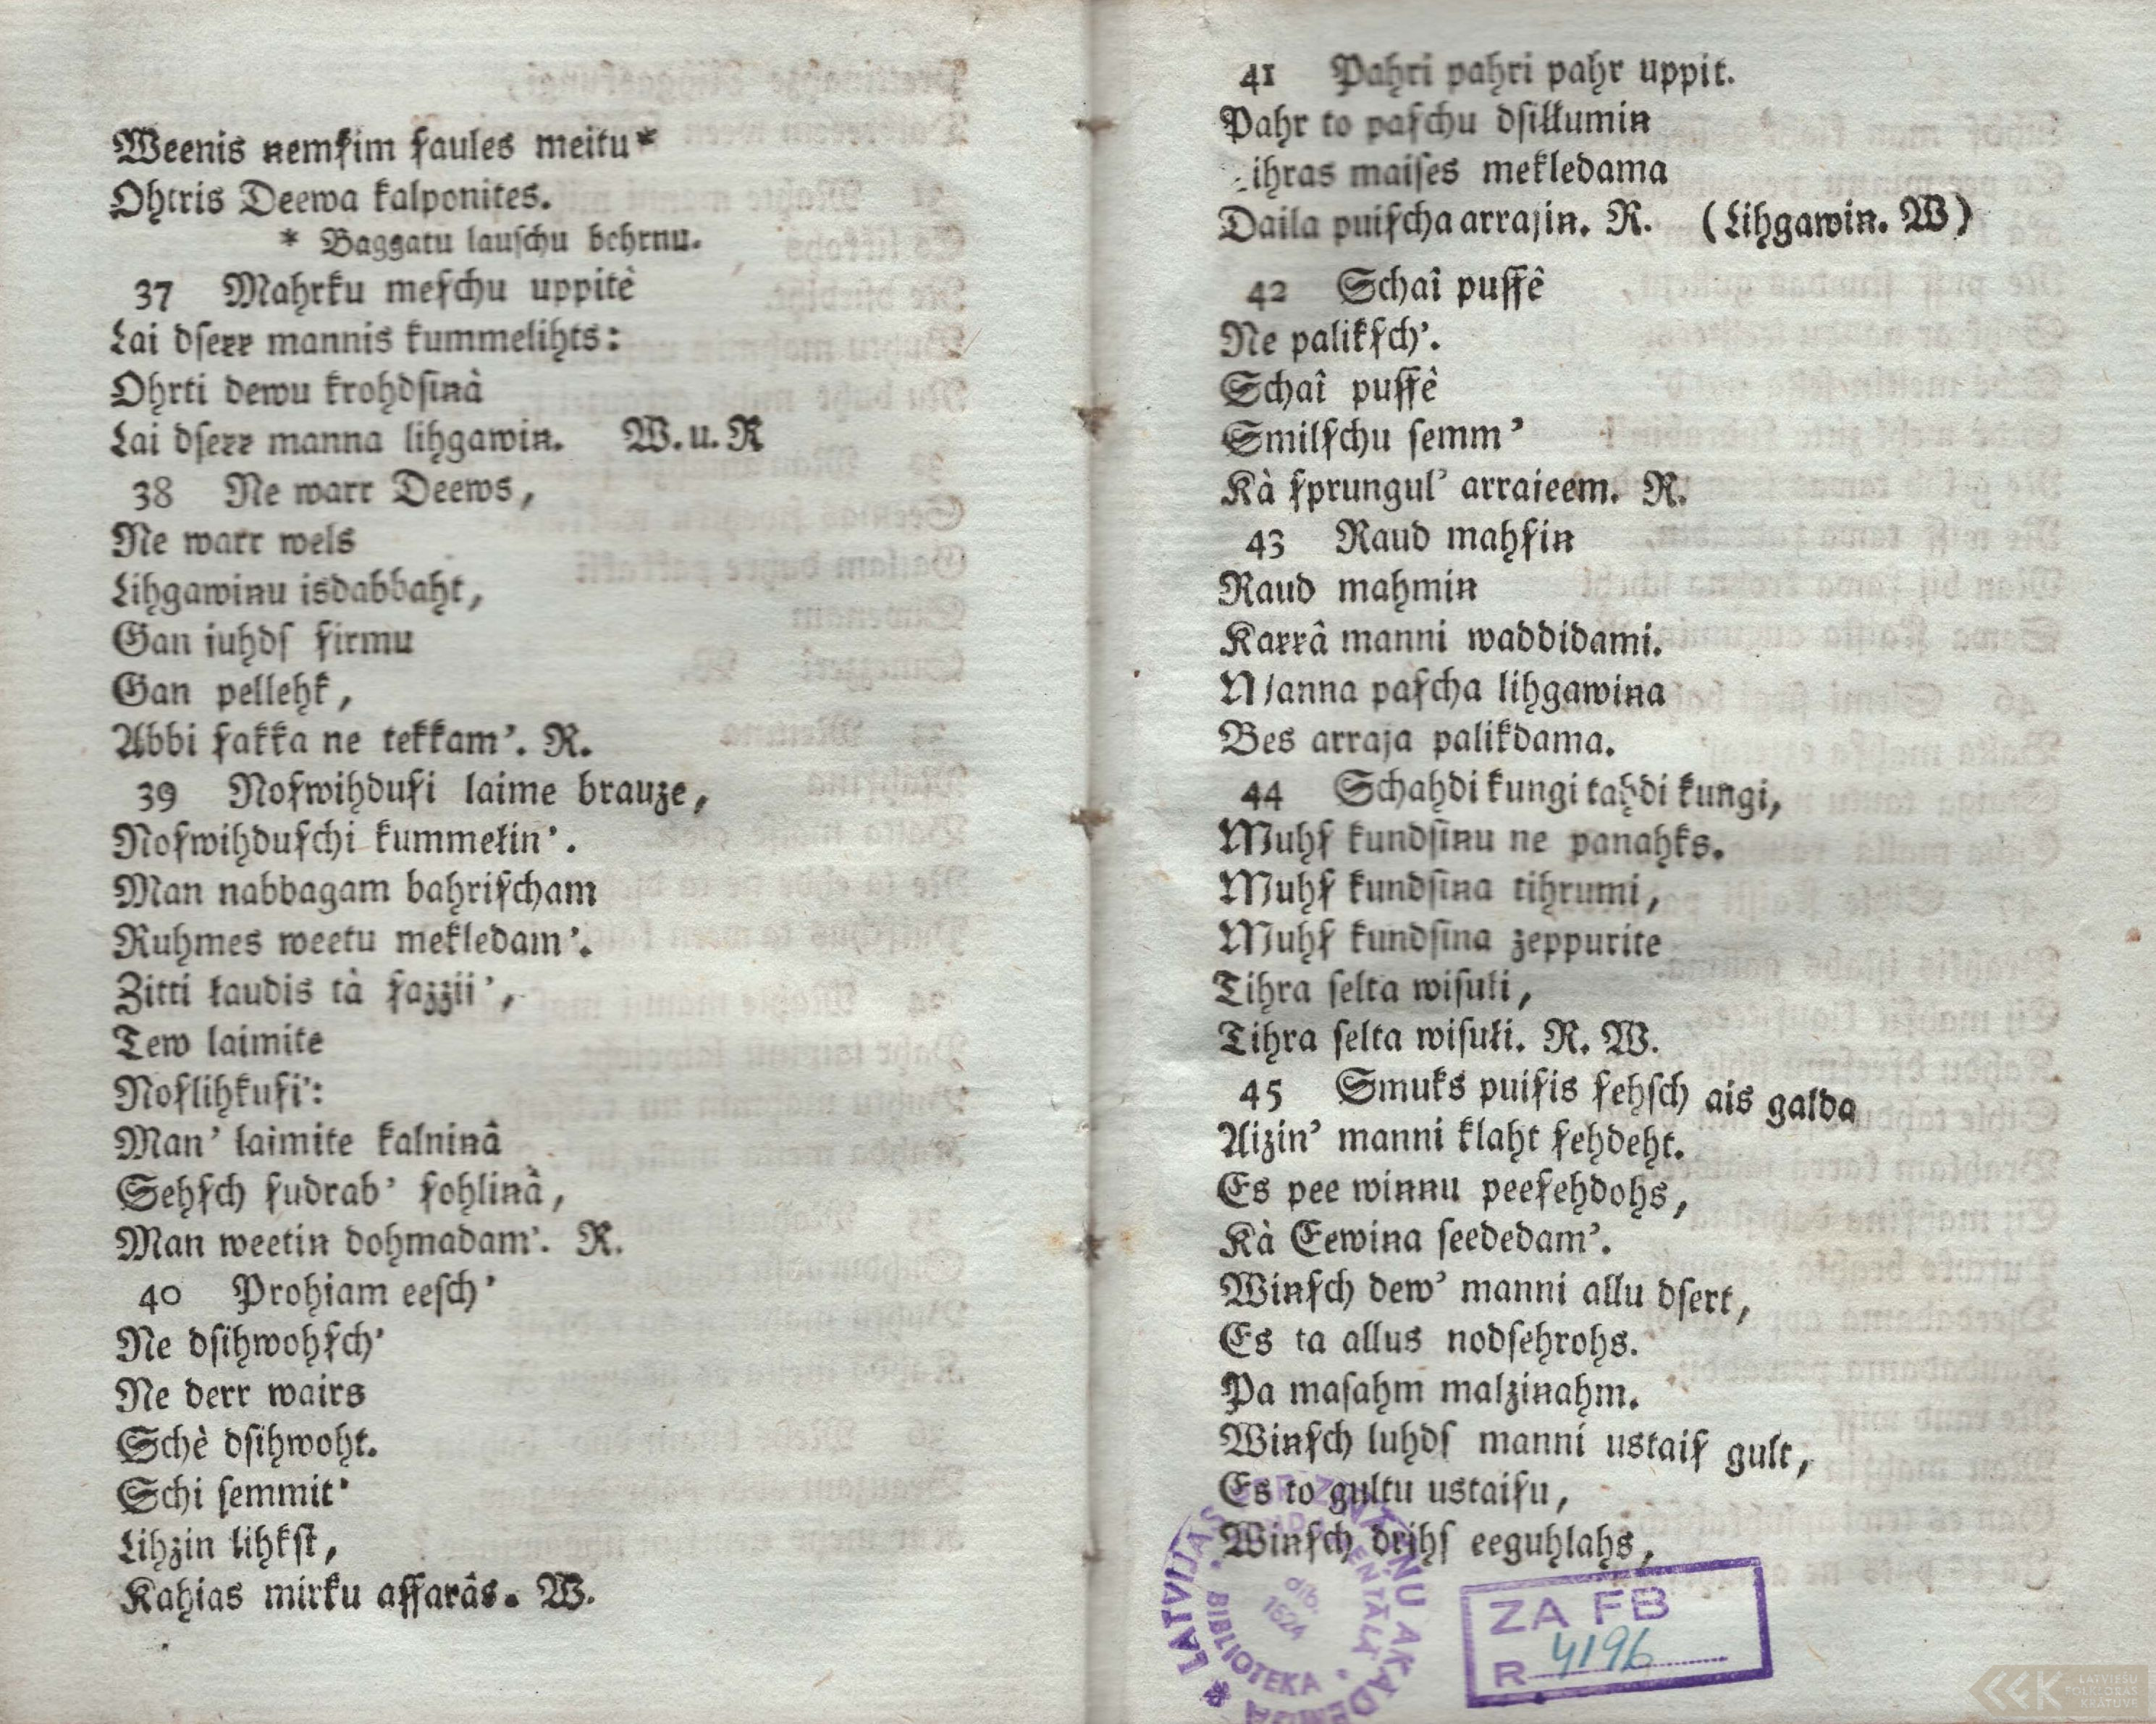 Weenis nemſim ſaules meitu*
Ohtris Deewa kalponites.
* Baggatu lauſchu behrnu.
37 Mahrku meſchu uppitè
Lai dſeꝛꝛ mannis kummelihts:
Ohrti dewu krohdſiņà
Lai dſeꝛꝛ manna lihgawiņ. W. u. R
38 Ne warr Deews,
Ne warr wels
Lihgawiņu isdabbaht,
Gan juhdſ ſirmu
Gan pellehk,
Abbi ſakka ne tekkam’. R.
39 Noſwihduſi laime brauze,
Noſwihduſchi kummełin’.
Man nabbagam bahriſcham
Ruhmes weetu mekledam’.
Zitti łaudis tà ſazzij’,
Tew laimite
Noſlihkuſi’:
Man’ laimite kalniņâ
Sehſch ſudrab’ ſohliņà,
Man weetin dohmadam’. R.
40 Prohjam eeſch’
Ne dſihwohſch’
Ne derr wairs
Schè dſihwoht.
Schi ſemmit’
Lihzin lihkſt,
Kahjas mirku aſſarâs. W.
41 Pahri pahri pahr uppit.
Pahr to paſchu dſiłłumiņ
ihras maiſes mekledama
Daila puiſcha arrajiņ. R. (Lihgawiņ. W)
42 Schaî puſſê
Ne palikſch’.
Schaî puſſè
Smilſchu ſemm’
Kà ſprungul’ arrajeem. R.
43 Raud mahſiņ
Raud mahmiņ
Kaꝛꝛâ manni waddidami.
Manna paſcha lihgawiņa
Bes arraja palikdama.
44 Schahdi kungi tahdi kungi,
Muhſ kundſiņu ne panahks.
Muhſ kundſiņa tihrumi,
Muhſ kundſiņa zeppurite
Tihra ſelta wiſułi,
Tihra ſelta wiſułi. R. W.
45 Smuks puiſis ſehſch ais galda
Aizin’ manni klaht ſehdeht.
Es pee wiņņu peeſehdohs,
Kà Eewiņa ſeededam’.
Wiņſch dew’ manni allu dſert,
Es ta allus nodſehrohs.
Pa maſahm malziņahm.
Wiņſch luhdſ manni ustaiſ gult,
Es to gultu ustaiſu,
Wiņſch drihſ eeguhlahs,
LATVIJAS PSR ZINĀTŅU AKADĒMIJA
FUNDAMENTĀLĀ BIBLIOTEKA
dib. 1524
ZA FB
R 4196
LATVIEŠU
FOLKLORAS
KRĀTUVE